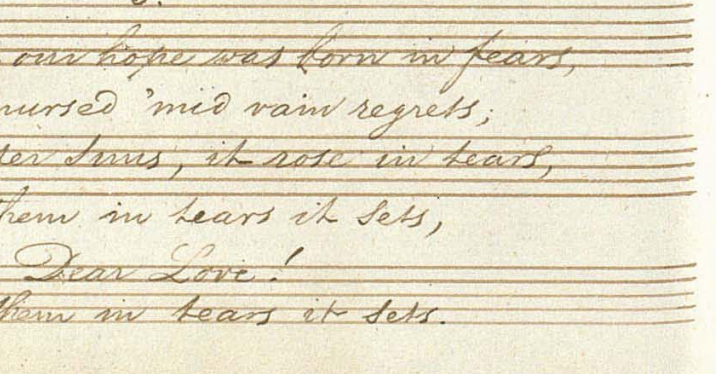 our hope was born in fears,
nursed 'mid vain regrets;
suns, it rose in tears,
them in tears it sets,
Dear Love!
them in tears it sets.